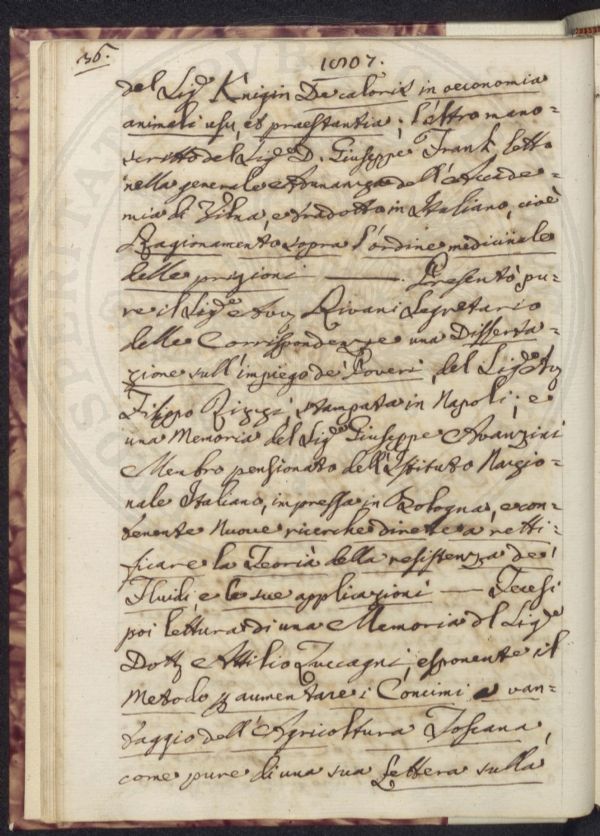 36.
1807.
del Sig.e Knigin De caloris in oeconomia
animali usu, et praestantia; l'altro mano=
scritto del Sig.e D. Giuseppe Frank letto
nella generale Adunanza dell'Accade=
mia di Vilna, e tradotto in Italiano, cioè
Ragionamento sopra l'ordine medicinale
delle prigioni ———. Presentò pu=
re il Sig.e Avv. Rivani Segretario
delle Corrispondenze una Disserta=
zione sull'impiego de' Poveri del Sig.e Avv.
Filippo Rizzi, stampata in Napoli; e
una Memoria del Sig.e Giuseppe Avanzini
Membro pensionato dell'Istituto Nazio=
nale Italiano, impressa in Bologna, e con=
tenente Nuove ricerche dirette a retti=
ficare la Teoria della resistenza de'
Fluidi, e le sue applicazioni — Fecesi
poi lettura di una Memoria del Sig.e
Dott. Attilio Zuccagni, esponente il
Metodo p aumentare i Concimi a van=
taggio dell'Agricoltura Toscana,
come pure di una sua Lettera sulla